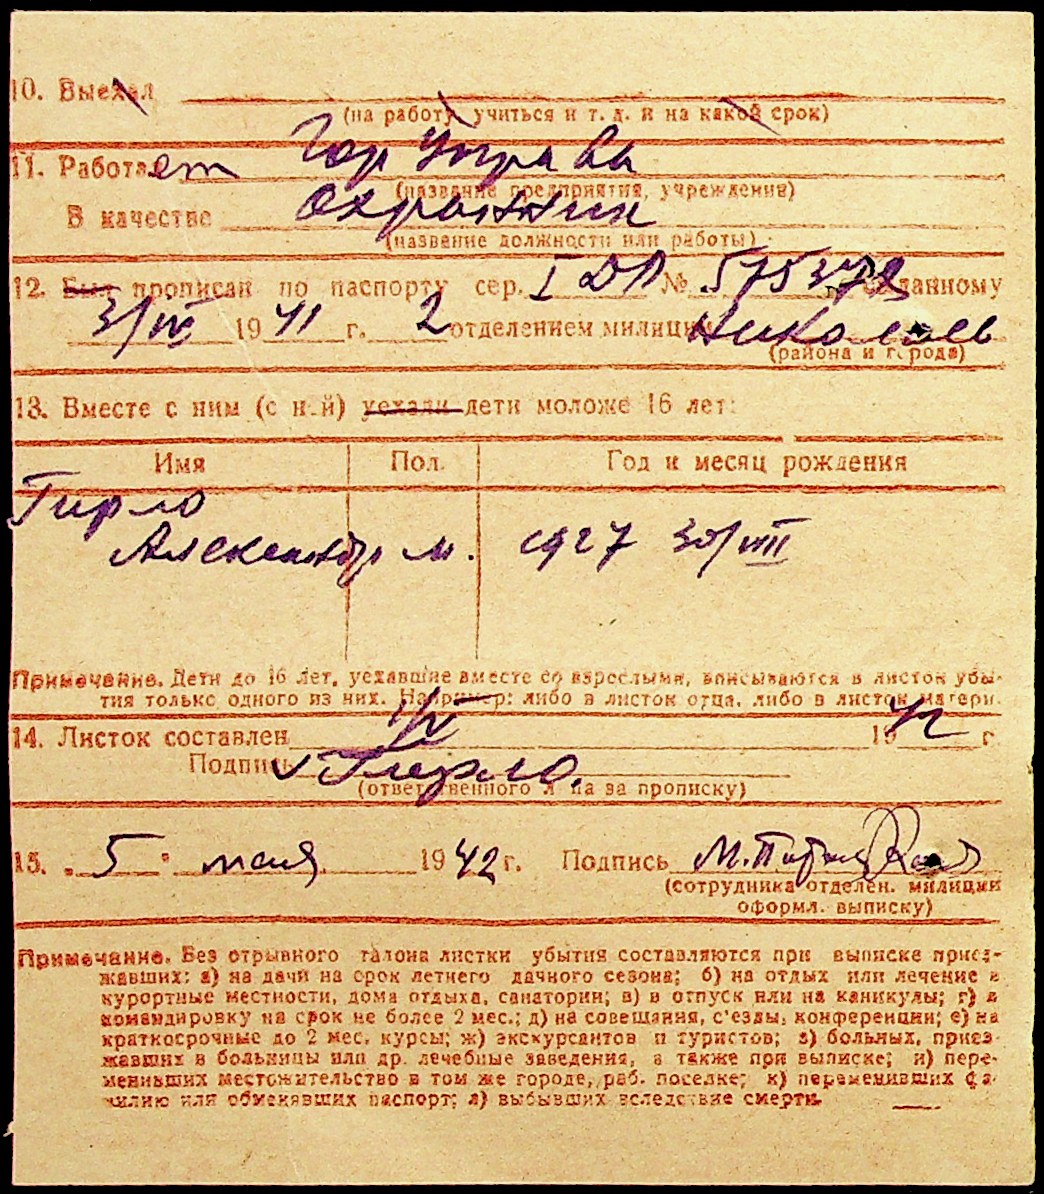 10. Выехал
(на работу учиться и т. д. и на какой срок)
11. Работает Гор Управа
(название предприятия, учреждения)
В качестве Охранник
(название должности или работы)
12. Был прописан по паспорту сер. I ДП № 575378, выданному
3/IV 1941 г. 2 отделением милиции Николаев
(района и города)
13. Вместе с ним (с ней) уехали дети моложе 16 лет:
Имя Пол. Год и месяц рождения
Гирло
Александр м. 1927 30/VIII
Примечание. Дети до 16 лет, уехавшие вместе со взрослыми, вписываются в листок убы-
тия только одного из них. Например: либо в листок отца, либо в листок матери.
14. Листок составлен 1/V 1942 г.
Подпись Гирло
(ответственного лица за прописку)
15. „5" мая 1942 г. Подпись
(сотрудника отделен. милиции
оформл. выписку)
Примечание. Без отрывного талона листки убытия составляются при выписке приез-
жавших: а) на дачи на срок летнего дачного сезона; б) на отдых или лечение в
курортные местности, дома отдыха, санатории; в) в отпуск или на каникулы; г) в
командировку на срок не более 2 мес.; д) на совещания, с'езды, конференции; е) на
краткосрочные до 2 мес. курсы; ж) экскурсантов и туристов; з) больных, приез-
жавших в больницы или др. лечебные заведения, а также при выписке; и) пере-
менивших местожительство в том же городе, раб. поселке; к) переменивших фа-
милию или обменявших паспорт; л) выбывших вследствие смерти.